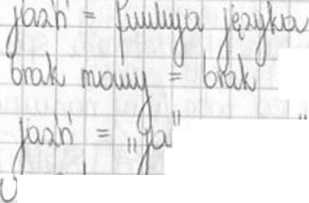 jaźń = funkcja języka
brak mowy = brak
jaźń = „ja"